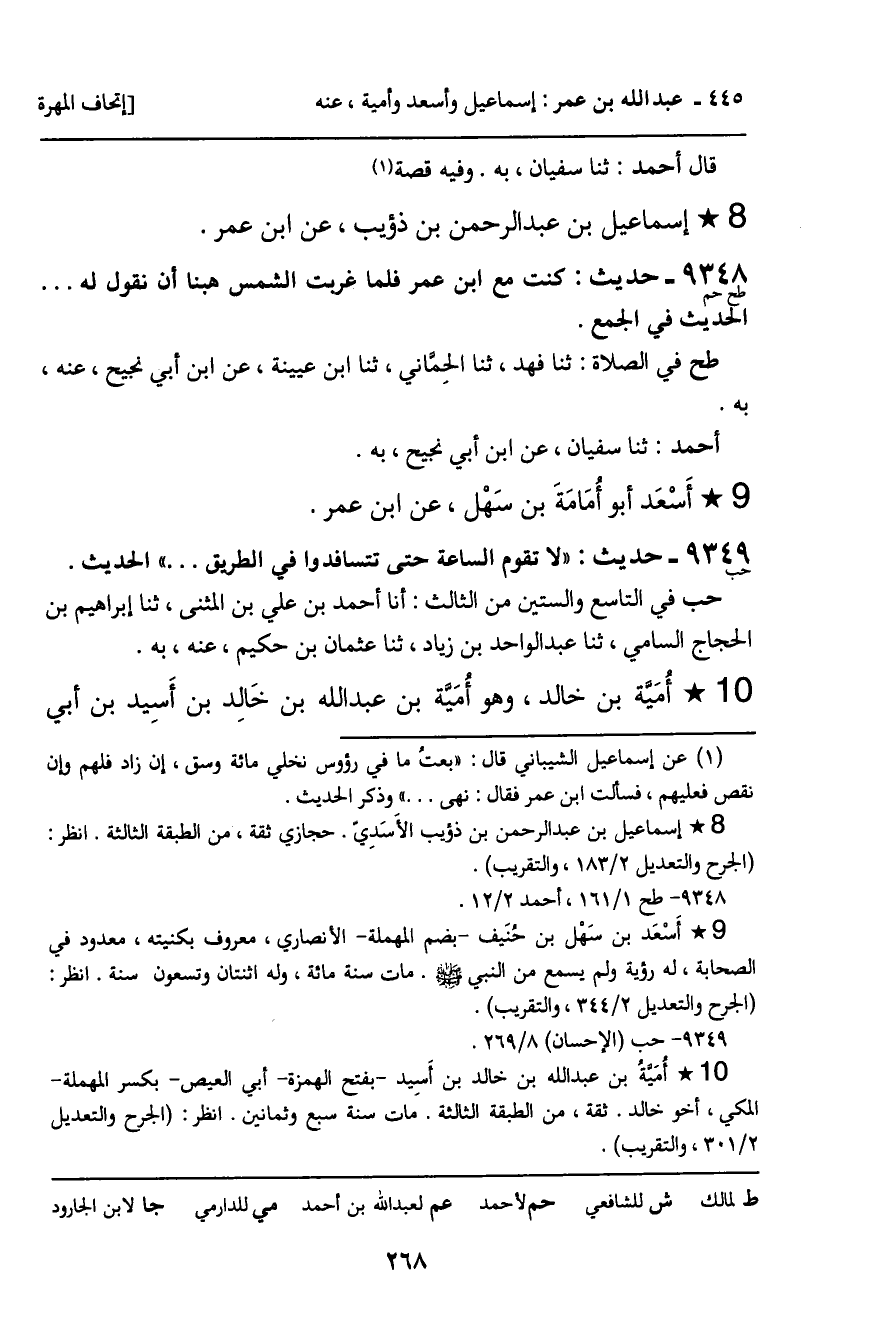 ٤٤٥ ـ عبدالله بن عمر : إسماعيل وأسعد وأمية ، عنه [إتحاف المهرة
قال أحمد : ثنا سفيان ، به . وفيه قصة(١)
8 ★ إسماعيل بن عبدالرحمن بن ذؤيب ، عن ابن عمر .
٩٣٤٨ ـ حديث : كنت مع ابن عمر فلما غربت الشمس هبنا أن نقول له ...
طح حم
الحديث في الجمع .
طح في الصلاة : ثنا فهد ، ثنا الحِمَّاني ، ثنا ابن عيينة ، عن ابن أبي نجيح ، عنه ،
به .
أحمد : ثنا سفيان ، عن ابن أبي نجيح ، به .
9 ★ أَسْعَد أبو أُمَامَةَ بن سَهْل ، عن ابن عمر .
٩٣٤٩ ـ حديث : «لا تقوم الساعة حتى تتسافدوا في الطريق ...» الحديث .
حب
حب في التاسع والستين من الثالث : أنا أحمد بن علي بن المثنى ، ثنا إبراهيم بن
الحجاج السامي ، ثنا عبدالواحد بن زياد ، ثنا عثمان بن حكيم ، عنه ، به .
10 ★ أُمَيَّة بن خالد ، وهو أُمَيَّة بن عبدالله بن خَالِد بن أَسِيد بن أبي
(١) عن إسماعيل الشيباني قال : «بعتُ ما في رؤوس نخلي مائة وسق ، إن زاد فلهم وإن
نقص فعليهم ، فسألت ابن عمر فقال : نهى ...» وذكر الحديث .
8 ★ إسماعيل بن عبدالرحمن بن ذؤيب الأَسَدِيّ . حجازي ثقة ، من الطبقة الثالثة . انظر :
(الجرح والتعديل ١٨٣/٢ ، والتقريب) .
٩٣٤٨- طح ١٦١/١ ، أحمد ١٢/٢ .
9 ★ أَسْعَد بن سَهْل بن حُنَيف -بضم المهملة- الأنصاري ، معروف بكنيته ، معدود في
الصحابة ، له رؤية ولم يسمع من النبي ﷺ . مات سنة مائة ، وله اثنتان وتسعون سنة . انظر :
(الجرح والتعديل ٣٤٤/٢ ، والتقريب) .
٩٣٤٩- حب (الإحسان) ٢٦٩/٨ .
10 ★ أُمَيَّةُ بن عبدالله بن خالد بن أَسِيد -بفتح الهمزة- أبي العيص- بكسر المهملة-
المكي ، أخو خالد . ثقة ، من الطبقة الثالثة . مات سنة سبع وثمانين . انظر : (الجرح والتعديل
٣٠١/٢ ، والتقريب) .
ط لمالك ش للشافعي حم لأحمد عم لعبدالله بن أحمد مي للدارمي جا لابن الجارود
٢٦٨